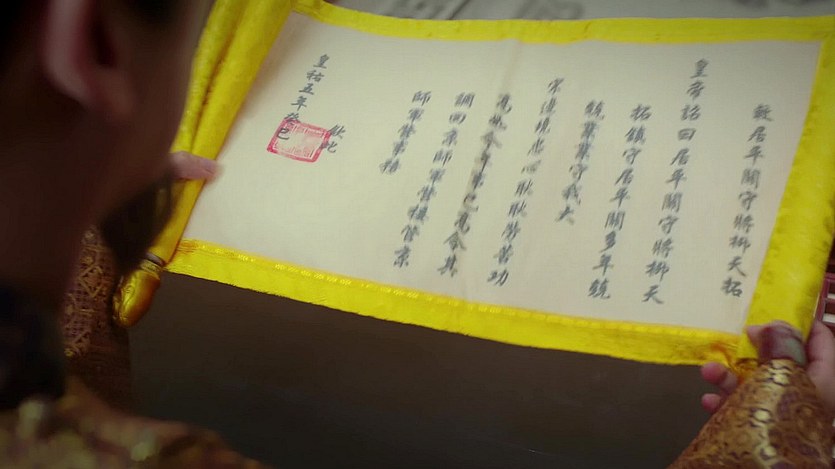 敕居年關守將柳天拓
皇帝詔曰居年關守將柳天
拓鎮守居年關多年統
統業業守我大
宋邊境忠心耿耿勞苦功
高 令
調回京師軍營 管京
師軍營事務
欽此
皇祐五年癸巳